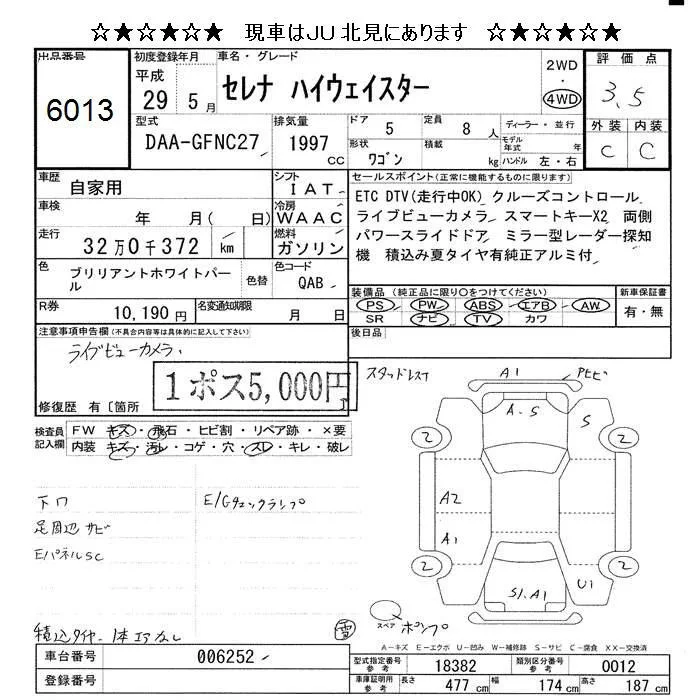 ☆★☆★☆★ 現車はJU北見にあります ☆★☆★☆★
出品番号
6013
初度登録年月
平成
29 5月
車名・グレード
セレナ ハイウェイスター
2WD
・
4WD
評価点
3.5
外装 内装
C C
型式
DAA-GFNC27
排気量
1997
CC
ドア 5
定員 8人
ディーラー・並行
形状
ワゴン
積載
kg
モデル年式 年
ハンドル 左・右
車歴
自家用
シフト
IAT
車検
年 月( 日)
冷房
WAAC
走行
32万0千372
km
燃料
ガソリン
色
ブリリアントホワイトパール
色替
色コード
QAB
R券
10,190円
名変通知期限
月 日
セールスポイント(正常に機能するものに限ります)
ETC DTV(走行中OK) クルーズコントロール
ライブビューカメラ スマートキーX2 両側
パワースライドドア ミラー型レーダー探知
機 積込み夏タイヤ有純正アルミ付
装備品 (純正品に限り○をつけてください)
PS PW ABS エアB AW
SR ナビ TV カワ
新車保証書
有・無
後日品
注意事項申告欄(不具合内容等は具体的に記入して下さい)
ライブビューカメラ
1ポス5,000円
修復歴 有〔箇所
検査員記入欄
FW キズ・飛石・ヒビ割・リペア跡・×要
内装 キズ・汚レ・コゲ・穴・スレ・キレ・破レ
下ワ
E/Gチェックランプ
足周辺サビ
EパネルSC
積込タイヤ、1本エアなし
雪
スタッドレス7
A1
PヒビA
A.S
S
2
2
A2
A1
2
2
S1.A1
U1
スペア
ポンプ
A-キズ E-エクボ U-凹み W-補修跡 S-サビ C-腐食 XX-交換済
車台番号
006252
登録番号
型式指定番号
参考
18382
類別区分番号
参考
0012
車庫証明用
参考
長さ
477 cm
幅
174 cm
高さ
187 cm